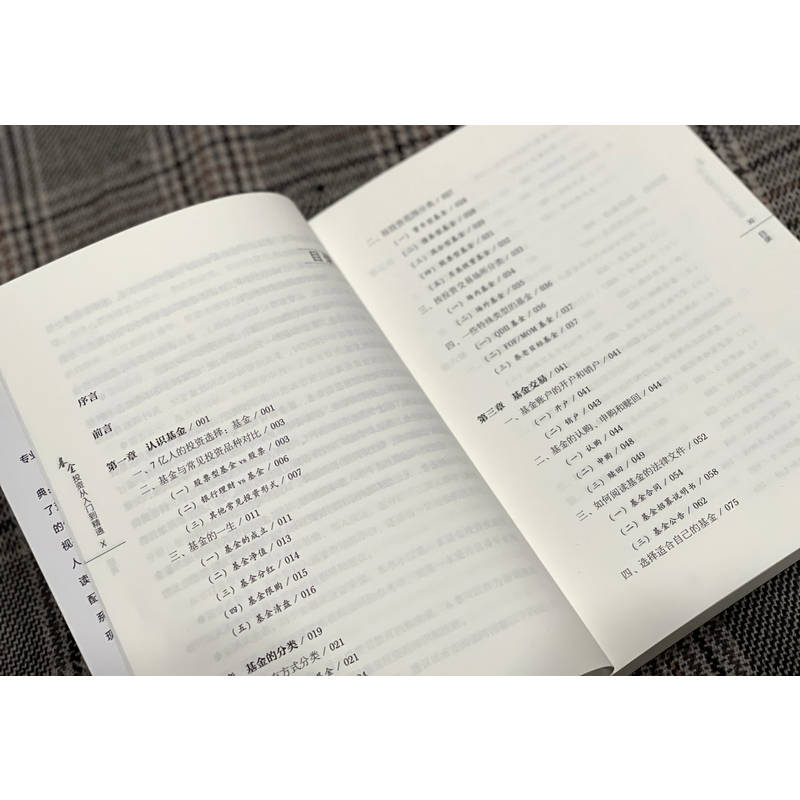 目
序言
前言
第一章 认识基金 / 001
一、7 亿人的投资选择：基金 / 001
二、基金与常见投资品种对比 / 003
（一）股票型基金 vs 股票 / 003
（二）银行理财 vs 基金 / 006
（三）其他常见投资形式 / 007
三、基金的一生 / 011
（一）基金的成立 / 011
（二）基金净值 / 013
（三）基金分红 / 014
（四）基金限购 / 015
（五）基金清盘 / 016
基金的分类 / 019
方式分类 / 021
基金 / 021
基金投资从入门到精通
X
专
典
了
的
视
人
读
配
现
三、按投资交易场所分类 / 033
（一）场内基金 / 034
（二）场外基金 / 035
四、一些特殊类型的基金 / 036
（一）QDII 基金 / 036
（二）FOF/MOM 基金 / 037
（三）养老目标基金 / 037
第三章 基金交易 / 041
一、基金账户的开户和销户 / 041
（一）开户 / 041
（二）销户 / 043
二、基金的认购、申购和赎回 / 044
（一）认购 / 044
（二）申购 / 048
（三）赎回 / 049
三、如何阅读基金的法律文件 / 052
（一）基金合同 / 054
（二）基金招募说明书 / 058
（三）基金公告 / 062
四、选择适合自己的基金 / 075
XI
目录